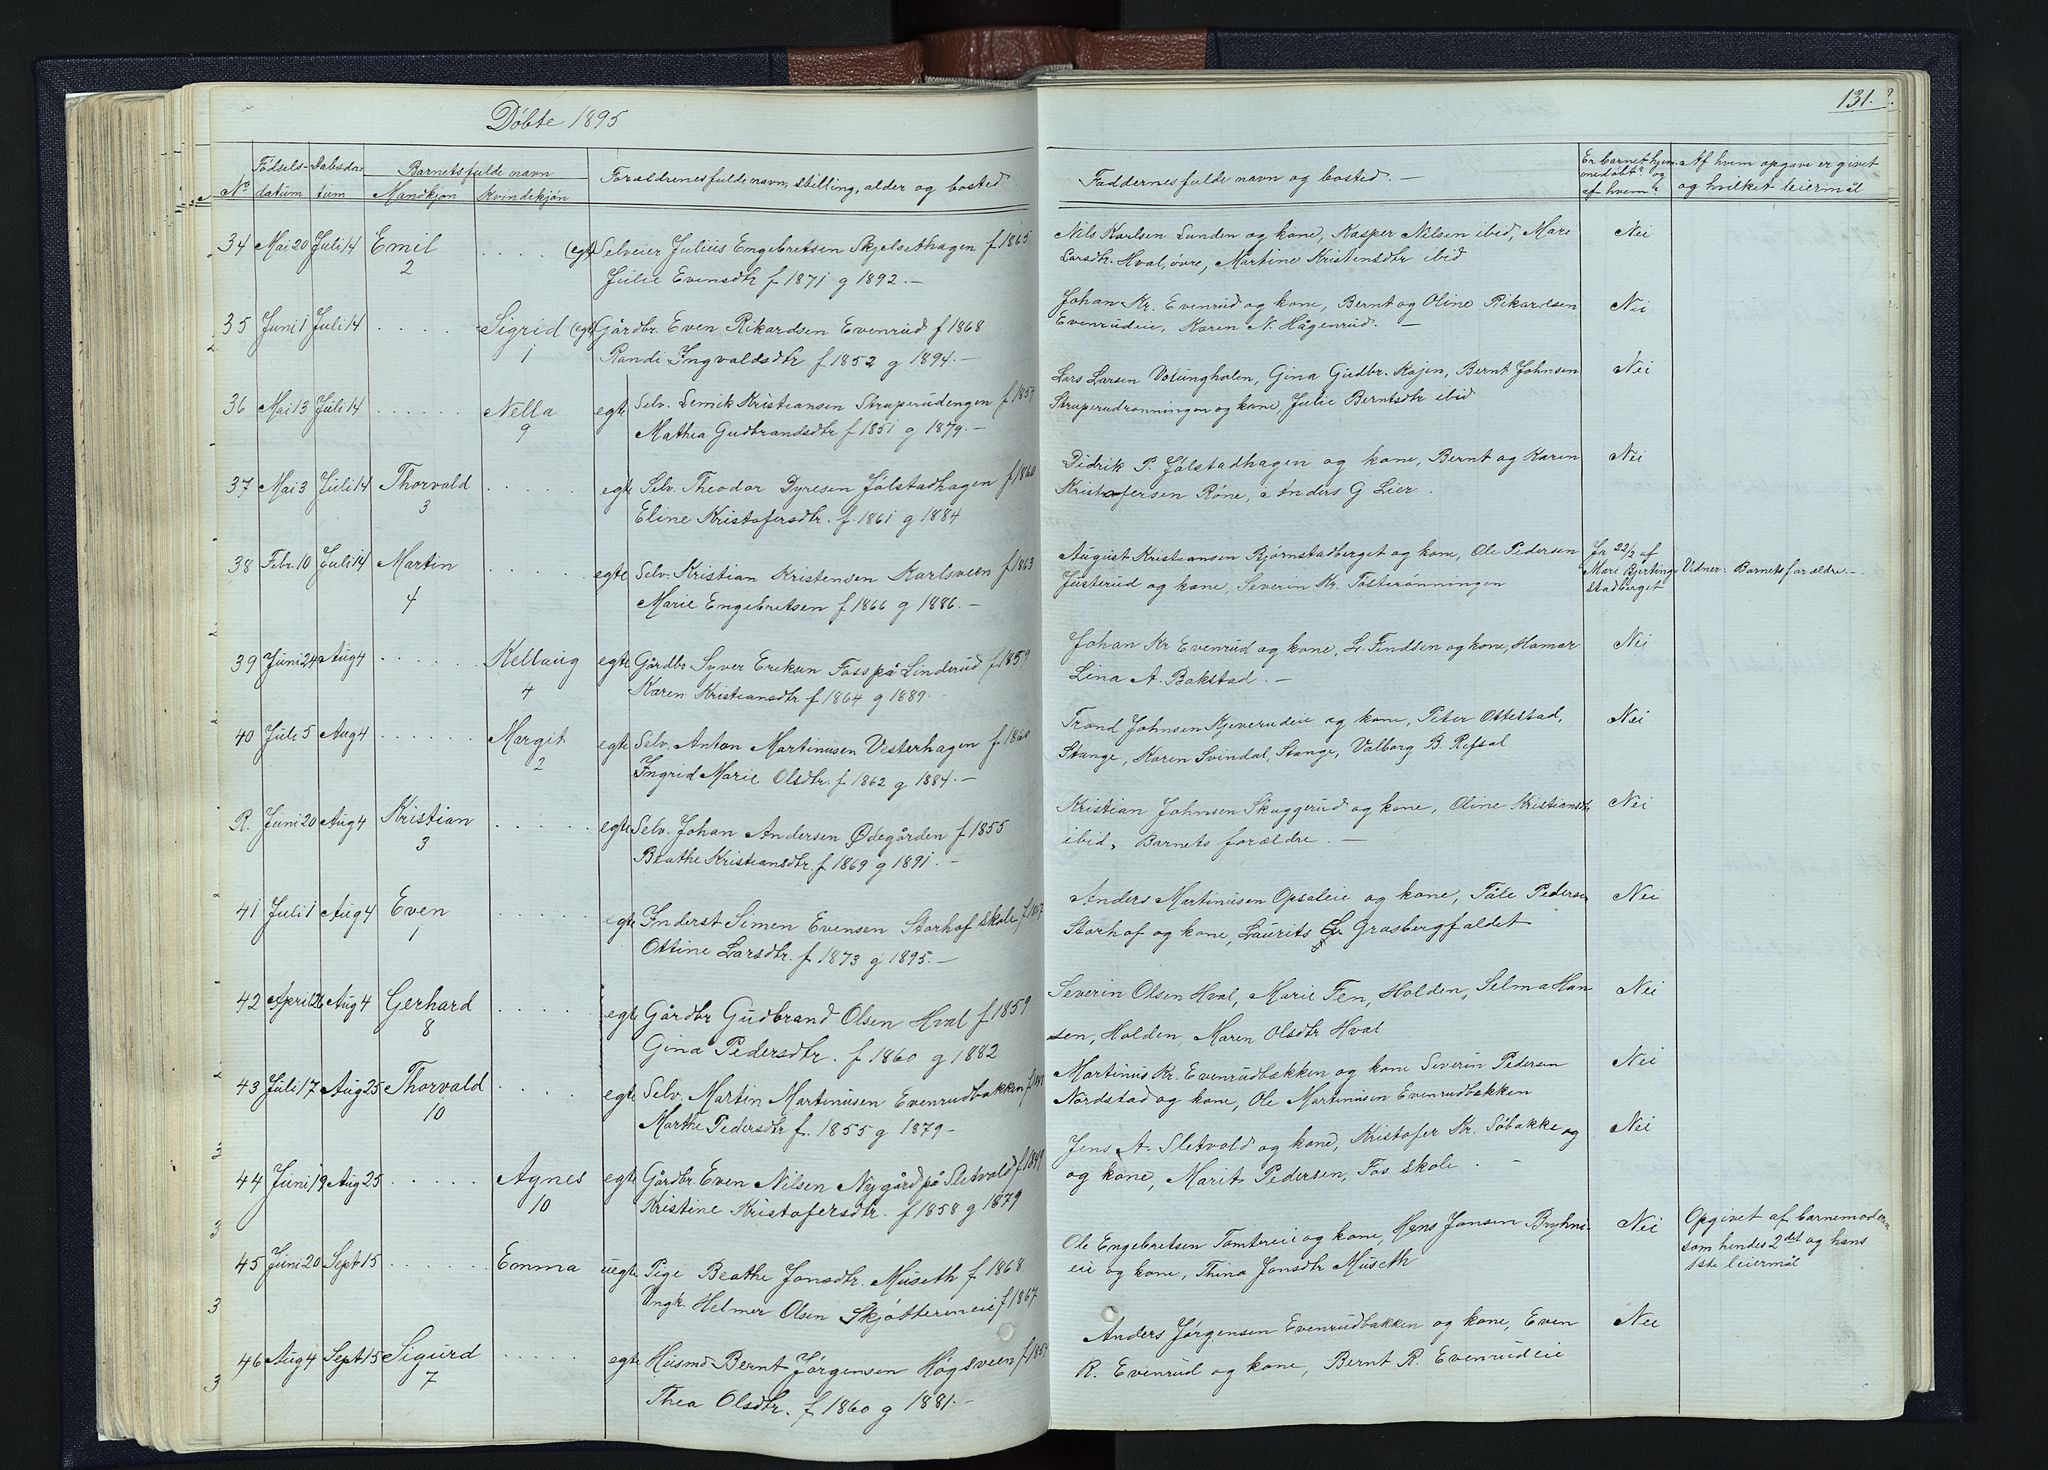 Døbte 1895
131.
No
Fødsels-
datum
Dabsda-
tum
Barnets fulde navn
Mandkjøn
Kvindekjøn
Forældrenes fulde navn, stilling, alder og bosted
Faddernes fulde navn og bosted. —
Er barnet hjem
medøbt? og
af hvem?
Af hvem opgave er givet
og hvilket leiermål
34 Mai 20 Juli 14 Emil (egte Selveier Julius Engebretsen Skjelsethagen f 1865
2 Julie Evensdtr f 1871 g 1892. —
Nils Karlsen Lunden og kone, Kasper Nilsen ibid, Mari Nei
Larsdtr. Hval, øvre, Martine Kristensdtr ibid
35 Juni 1 Juli 14 Sigrid (egte Gårdbr. Even Rikardsen Evenrud f 1868
1 Randi Ingvaldsdtr f 1852 g 1894. —
Johan Kr. Evenrud og kone, Bernt og Oline Rikardsen Nei
Evenrudeie, Karen N. Hågenrud. —
36 Mai 13 Juli 14 Nella egte Selv. Lemik Kristiansen Struperudengen f 1854
9 Mathea Gudbrandsdtr f 1851 g 1879. —
Lars Larsen Volungholen, Gina Gudbr. Kajen, Bernt Johnsen Nei
Struperudrønningen og kone, Julie Berntsdtr ibid
37 Mai 3 Juli 14 Thorvald egte Selv. Theodor Dyresen Jølstadhagen f 1860
3 Eline Kristofersdtr. f. 1861 g 1884
Didrik P. Jølstadhagen og kone, Bernt og Karen Nei
Kristofersen Røne, Anders G Lier.
38 Febr. 10 Juli 14 Martin egte Selv. Kristian Kristensen Karlsveen f 1863
4 Marie Engebretsen f 1866 g 1886. —
August Kristiansen Bjørnstadberget og kone, Ole Pedersen Jr 22/2 af
Justerud og kone, Severin Kr. Tosterønningen Mari Bjerting- Vidner: Barnets forældre. —
stadberget
39 Juni 24 Aug 4 Kellaug egte Gårdbr Syver Eriksen Foss på Linderud f 1859
4 Karen Kristiansdtr f 1864 g 1889. —
Johan Kr Evenrud og kone, L. Findsen og kone, Hamar Nei
Lina A. Bakstad. —
40 Juli 5 Aug 4 Margit egte Selv. Anton Martinusen Vesterhagen f 1860
2 Ingrid Marie Olsdtr. f. 1862 g 1884. —
Trond Johnsen Kjeverudeie og kone, Peter Ottestad, Nei
Stange, Karen Svindal, Stange, Valborg B. Refsal
R. Juni 20 Aug 4 Kristian egte Selv. Johan Andersen Ødegården f 1855
3 Beathe Kristiansdtr. f 1869 g 1891. —
Kristian Johnsen Skaggerud og kone, Oline Kristiansdtr Nei
ibid, Barnets forældre. —
41 Juli 1 Aug 4 Even egte Inderst Simen Evensen Storhof skole f 1867
1 Ottine Larsdtr. f 1873 g 1895. —
Anders Martinusen Opsaleie og kone, Påle Pedersen Nei
Storhof og kone, Laurits Grasbergfaldet
42 April 26 Aug 4 Gerhard egte Gårdbr Gudbrand Olsen Hval f 1859
8 Gina Pedersdtr. f 1860 g 1882
Severin Olsen Hval, Marie Fen, Holden, Selma Han Nei
sen, Holden, Maren Olsdtr Hval
43 Juli 17 Aug 25 Thorvald egte Selv. Martin Martinusen Evenrudbakken
10 Marthe Pedersdtr f. 1855 g 1879 —
Martinus Kr. Evenrudbakken og kone Severin Pedersen Nei
Nordstad og kone, Ole Martinusen Evenrudbakken
44 Juni 19 Aug 25 Agnes egte Gårdbr. Even Nilsen Nygård på Sletvold f 1849
10 Kristine Kristofersdtr. f 1858 g 1879
Jens A. Sletvold og kone, Kristofer Kr. Søbakke og Nei
og kone, Marit Pedersen, Fos skole. —
45 Juni 20 Sept 15 Emma uegte Pige Beathe Jonsdtr. Museth f 1868
Ungk. Helmer Olsen Skjøttereneie f 1867
Ole Engebretsen Tomtereie og kone, Hans Jonsen Bryhni- Nei Opgivet af barnemoderen
ei og kone, Thina Jonsdtr Museth som hendes 2det og hans
1ste leiermål
46 Aug 4 Sept 15 Sigurd egte Husmd Bernt Jørgensen Høgsveen
7 Thea Olsdtr. f 1860 g 1881. —
Anders Jørgensen Evenrudbakken og kone, Even Nei
R. Evenrud og kone, Bernt R. Evenrudeie